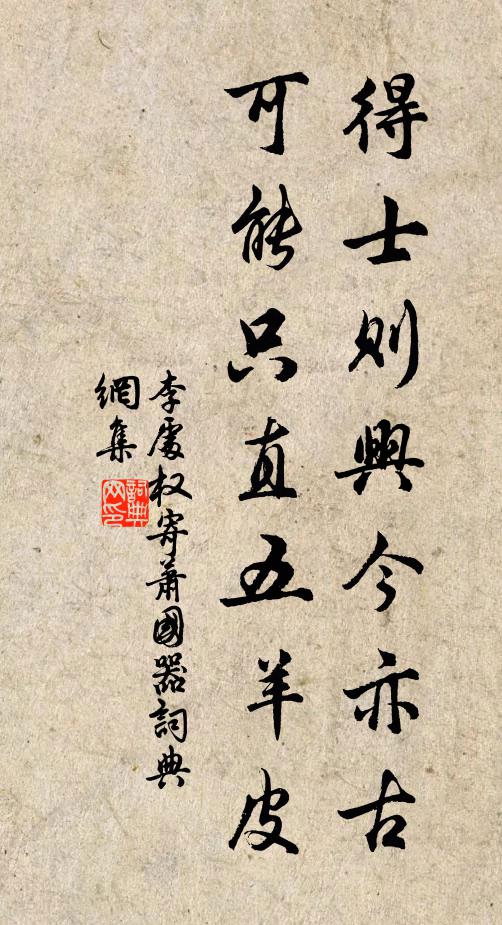 得士則興今亦古
可能只直五羊皮
李處权寄蕭國器詞典
網集
詞典网印